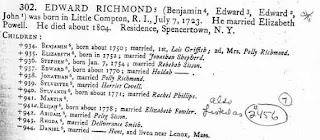 302. EDWARD RICHMOND⁵ (Benjamin⁴, Edward³, Edward²,
John¹) was born in Little Compton, R. I., July 7, 1723. He married Elizabeth
Powell. He died about 1804. Residence, Spencertown, N. Y.
CHILDREN:
+934. BENJAMIN⁶, born about 1750; married, 1st, Lois Griffith; 2d, Mrs. Polly Richmond.
+935. ELIZABETH⁶, born about 1752; married Jonathan Shepherd.
+936. STEPHEN⁶, born Jan. 7, 1754; married Rebekah Sison.
+937. EDWARD⁶, born about 1770; married Huldah
+938. JONATHAN⁶; married Polly Richmond.
+939. SYLVESTER⁶; married Harriet Cowell.
+940. SYLVANUS⁶, born about 1771; married Rachel Phillips.
941. MARTHA⁶.
+941. ELIJAH⁶, born about 1778; married Elizabeth Fowler.
+942. ABIGAIL⁶; married Peleg Sison.
+943. RHODA⁶; married Deliverance Smith.
944. DANIEL⁶, married — Hunt, and lived near Lenox, Mass.
also
2456
7